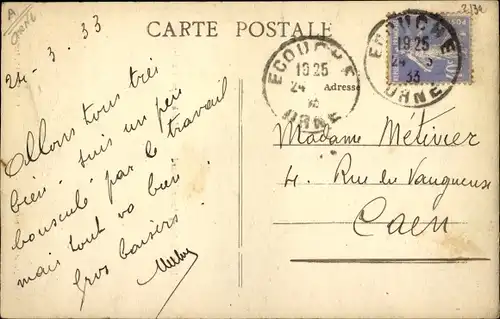 A
Orne
2132
CARTE POSTALE
24-3.33
Allons tous très
bien. suis un peu
bousculé par le travail
mais tout va bien.
Gros baisers.
Adresse
ECOUCHE
1925
24
ORNE
ECOUCHE
1925
24 3
33
ORNE
Madame Métivier
4. Rue de Vaugueux
Caen